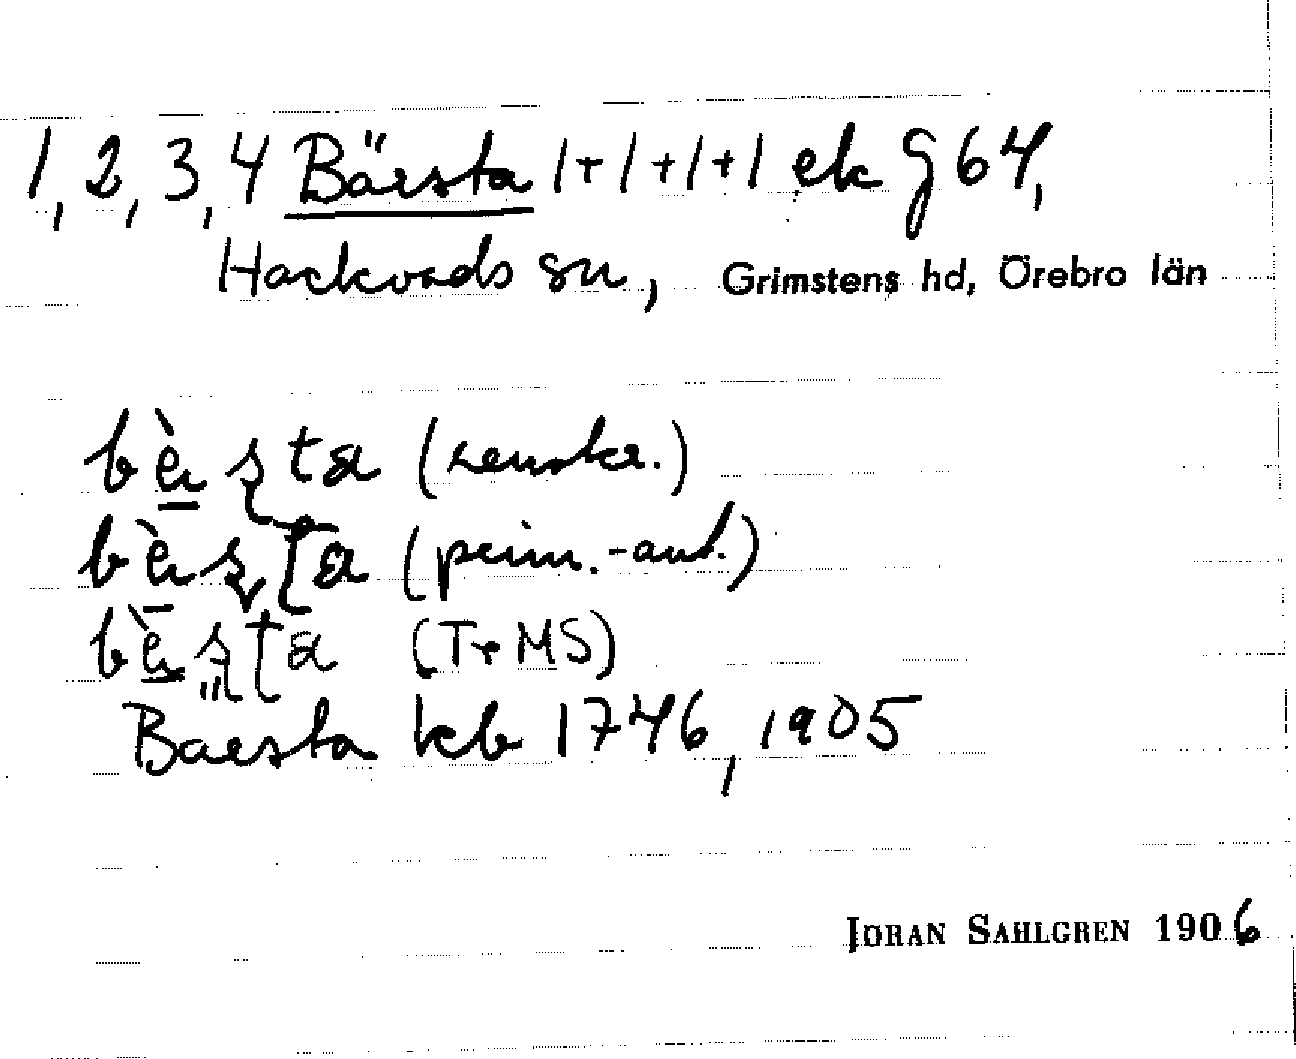 1, 2, 3, 4 Bärsta 1+1+1+1 ek G64,
Hackvads sn, Grimstens hd, Örebro län
(senskr.)
(prim.-ant.)
(TrMS)
Baersta kb 1746, 1905
JÖRAN SAHLGREN 1906